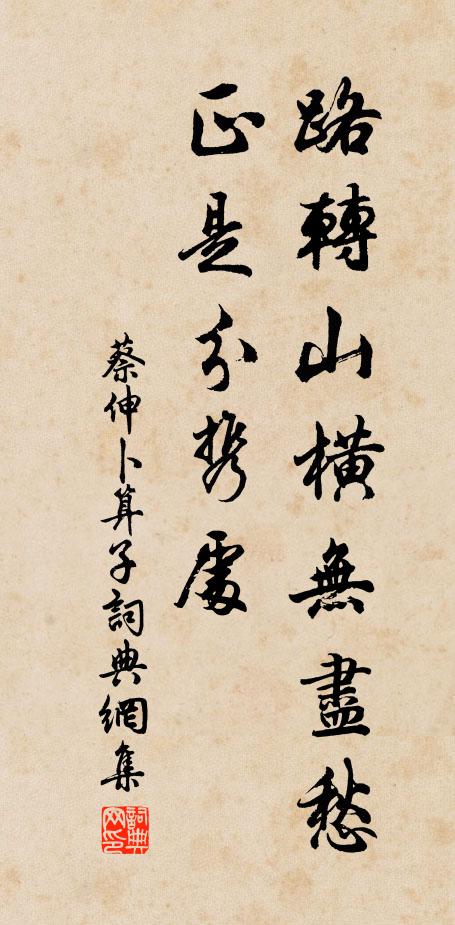 路轉山橫無盡愁
正是分携處
蔡伸卜算子詞典網集
詞典网印